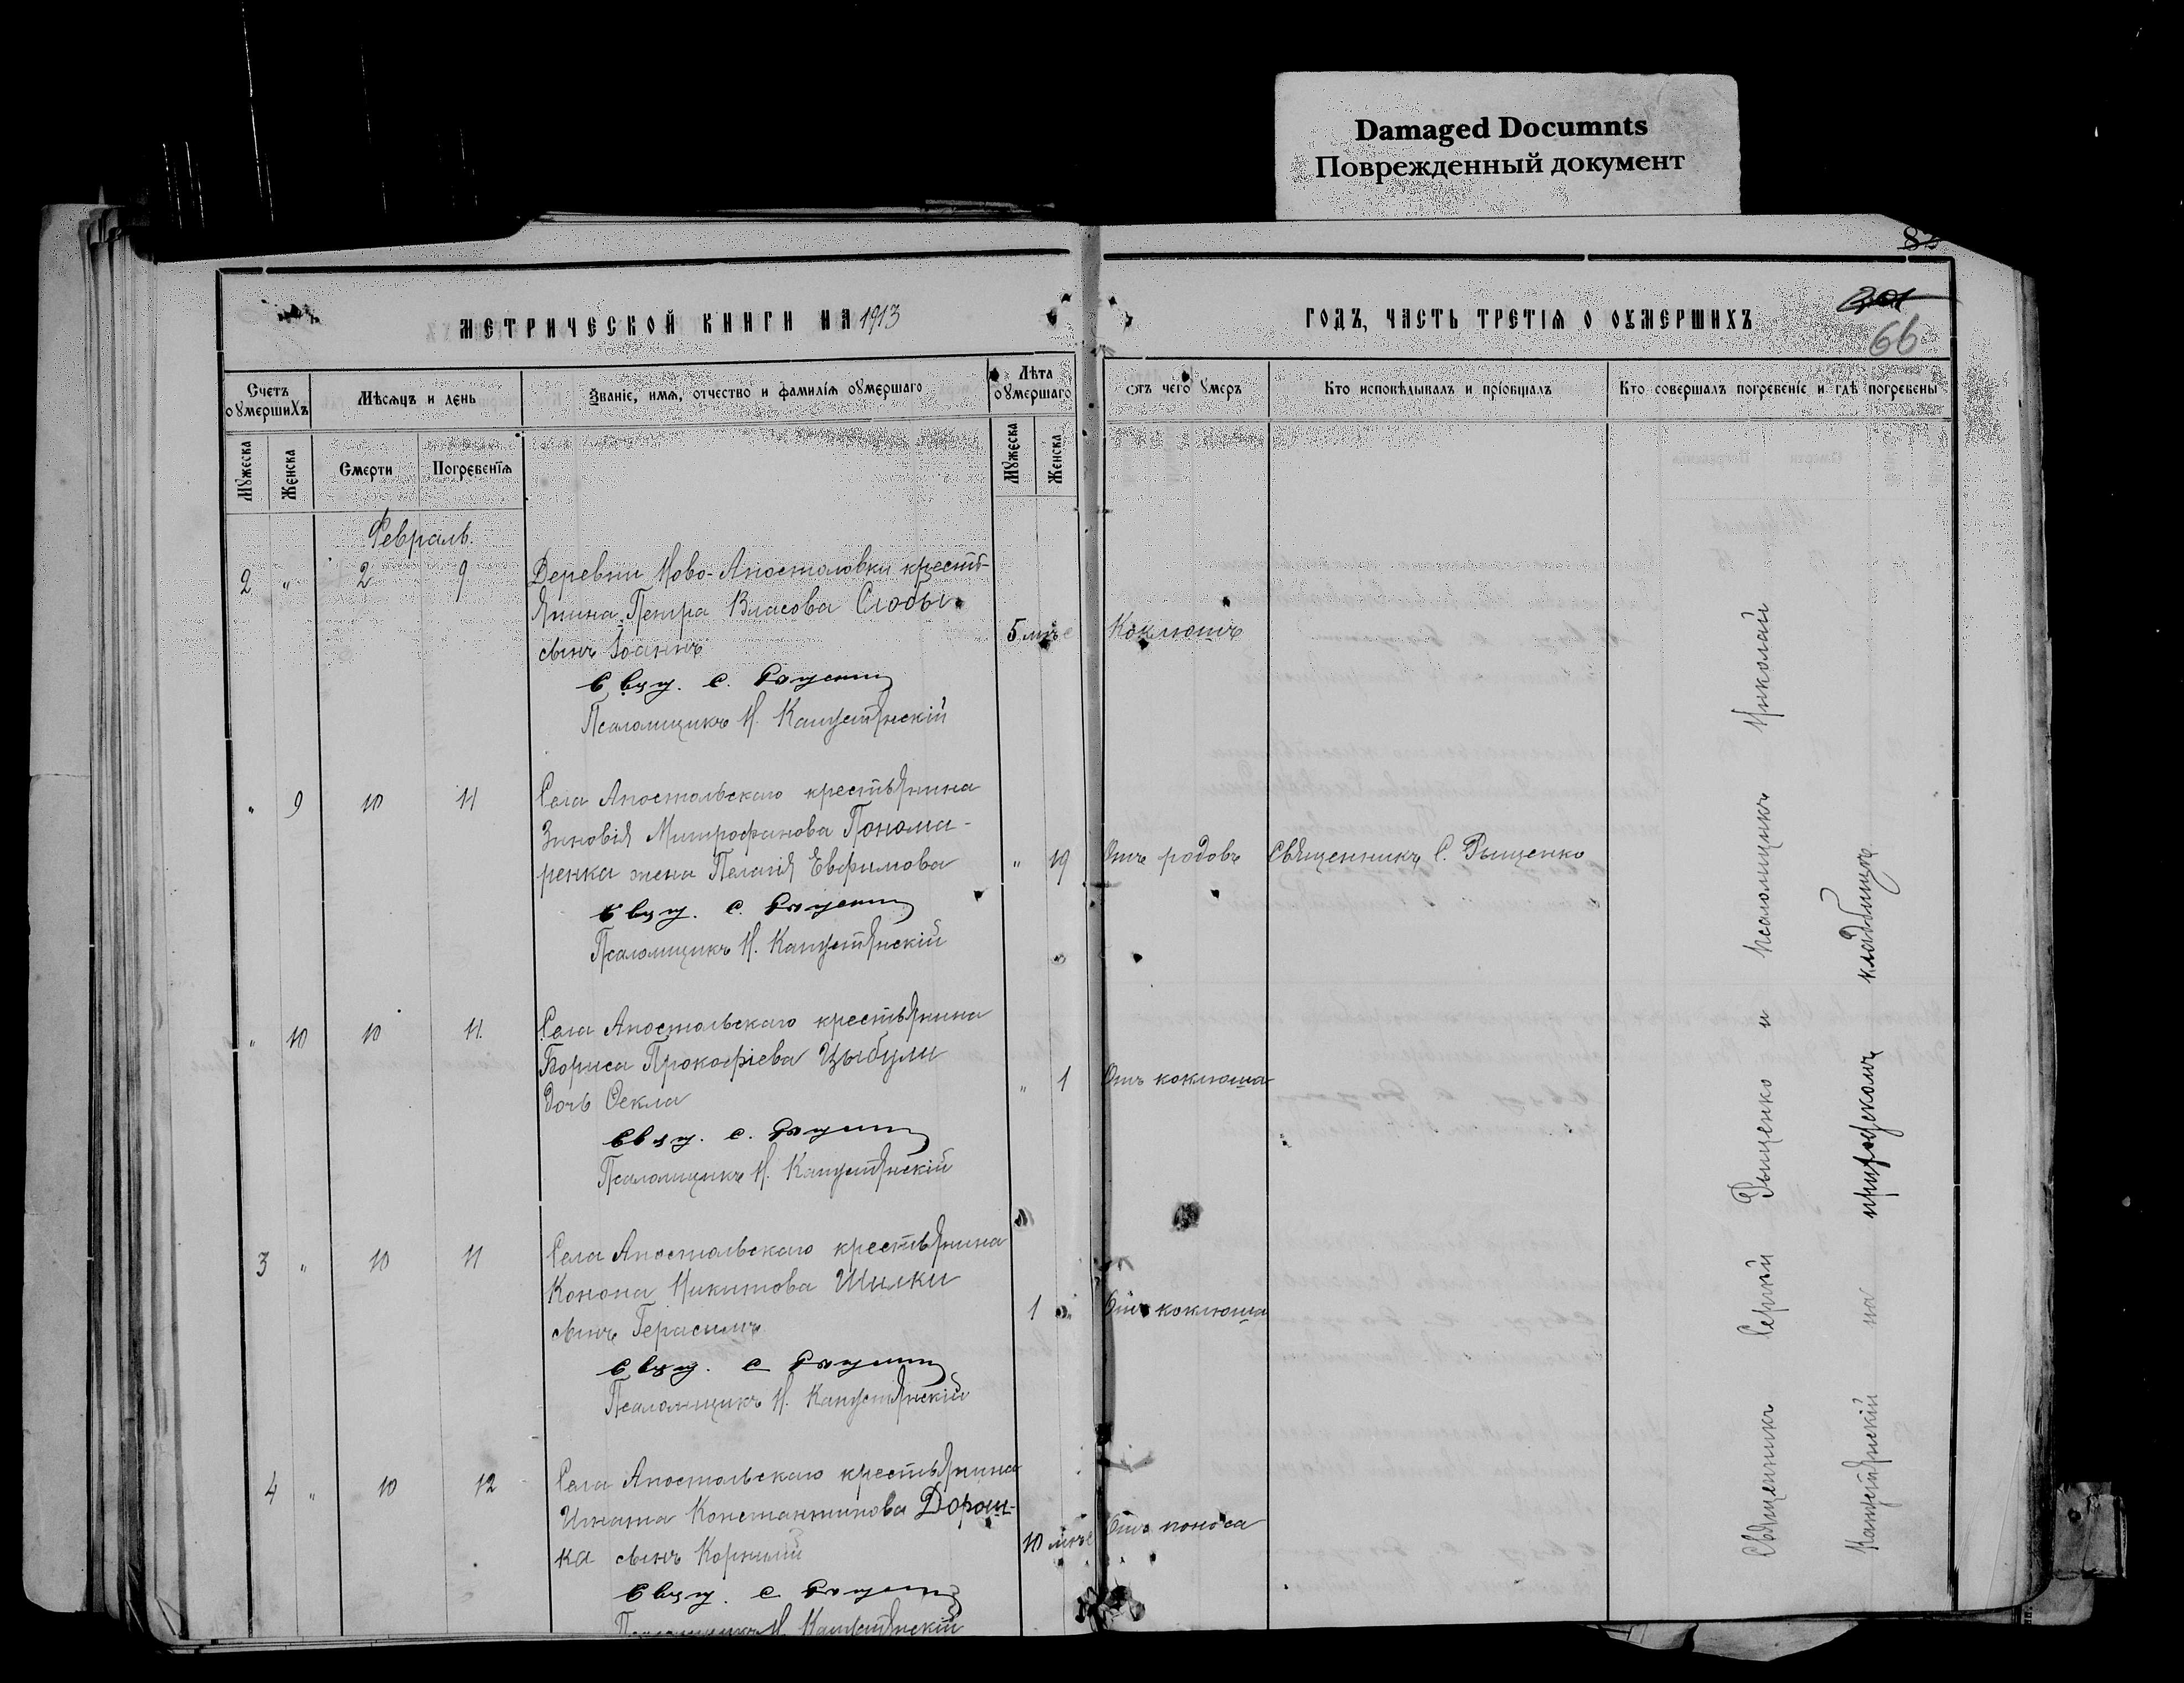 Damaged Documnts
Поврежденный документ
83
66
МЕТРИЧЕСКОЙ КНИГИ НА 1913
ГОДЪ, ЧАСТЬ ТРЕТІѦ О ОУМЕРШИХЪ
Счетъ оумершихъ
Мѣсѧцъ и день
Званіе, имѧ, отчество и фамиліѧ оумершаго
Лѣта оумершаго
Отъ чего умеръ
Кто исповѣдывалъ и пріобщалъ
Кто совершалъ погребеніе и гдѣ погребены
Мужеска
Женска
Смерти
Погребенїѧ
Мужеска
Женска
Февраль.
2 " 2 9 Деревни Ново-Апостоловки кресть-
янина Петра Власова Слюбы
сынъ Іоаннъ 5 мѣс Коклюшъ
Свящ. С. Рыщенко
Псаломщикъ Н. Капустянскій
" 9 10 11 Села Апостольскаго крестьянина
Зиновія Митрофанова Понома-
ренка жена Пелагія Евфимова " 19 Отъ родовъ Священникъ С. Рыщенко
Свящ. С. Рыщенко
Псаломщикъ Н. Капустянскій
" 10 10 11. Села Апостольскаго крестьянина
Бориса Прокофіева Цыбули
дочь Ѳекла " 1 Отъ коклюша
Свящ. С. Рыщенко
Псаломщикъ Н. Капустянскій
3 " 10 11 Села Апостольскаго крестьянина
Конона Никитова Шилки
сынъ Герасимъ 1 " Отъ коклюша
Свящ. С Рыщенко
Псаломщикъ Н. Капустянскій
4 " 10 12 Села Апостольскаго крестьянина
Игната Константинова Дорош-
ка сынъ Корнилій 10 мѣс Отъ поноса
Свящ. С Рыщенко
Псаломщикъ Н. Капустянскій
Священникъ Сергій Рыщенко и псаломщикъ Николай
Капустянскій на приходскомъ кладбищѣ